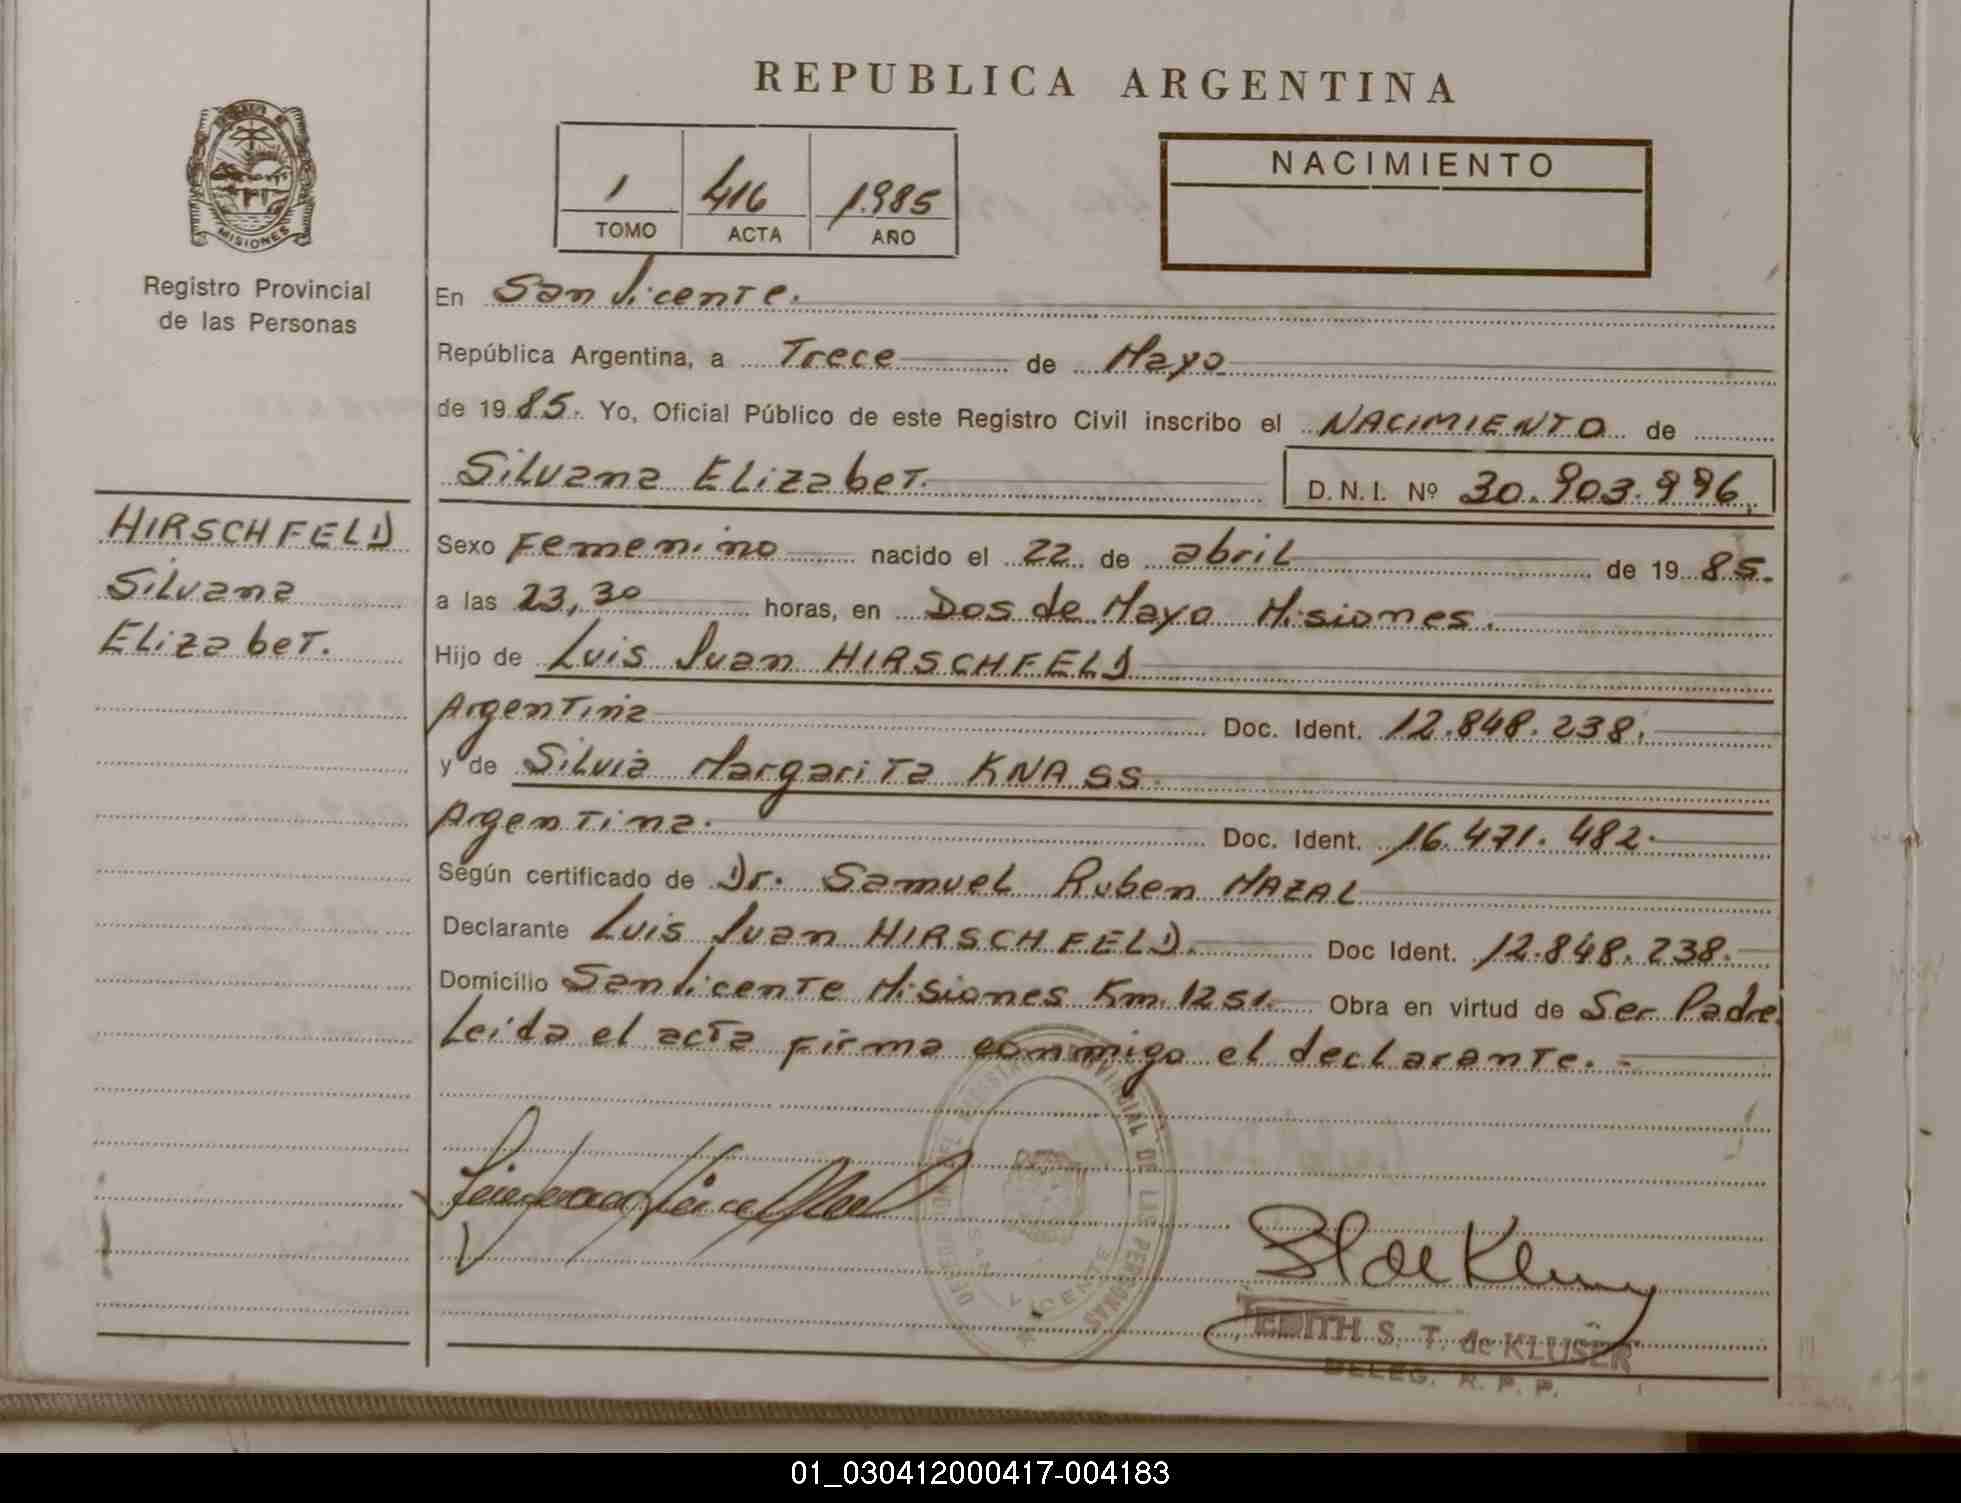 REPUBLICA ARGENTINA
MISIONES
Registro Provincial
de las Personas
1 416 1.985
TOMO ACTA AÑO
NACIMIENTO
En San Vicente.
República Argentina, a Trece de Mayo
de 1985. Yo, Oficial Público de este Registro Civil inscribo el NACIMIENTO de
Silvana Elizabet. D.N.I. Nº 30.903.996.
HIRSCHFELD
Silvana
Elizabet.
Sexo Femenino nacido el 22 de abril de 1985.
a las 23,30 horas, en Dos de Mayo Misiones.
Hijo de Luis Juan HIRSCHFELD
Argentina Doc. Ident. 12.848.238.
y de Silvia Margarita KNASS.
Argentina. Doc. Ident. 16.471.482.
Según certificado de Dr. Samuel Ruben MAZAL
Declarante Luis Juan HIRSCHFELD. Doc Ident. 12.848.238.
Domicilio San Vicente Misiones Km. 1251. Obra en virtud de Ser Padre.
Leida el acta firma conmigo el declarante.-
REGISTRO PROVINCIAL DE LAS PERSONAS
SAN VICENTE
EDITH S. T. de KLUSER
DELEG. R. P. P.
01_030412000417-004183